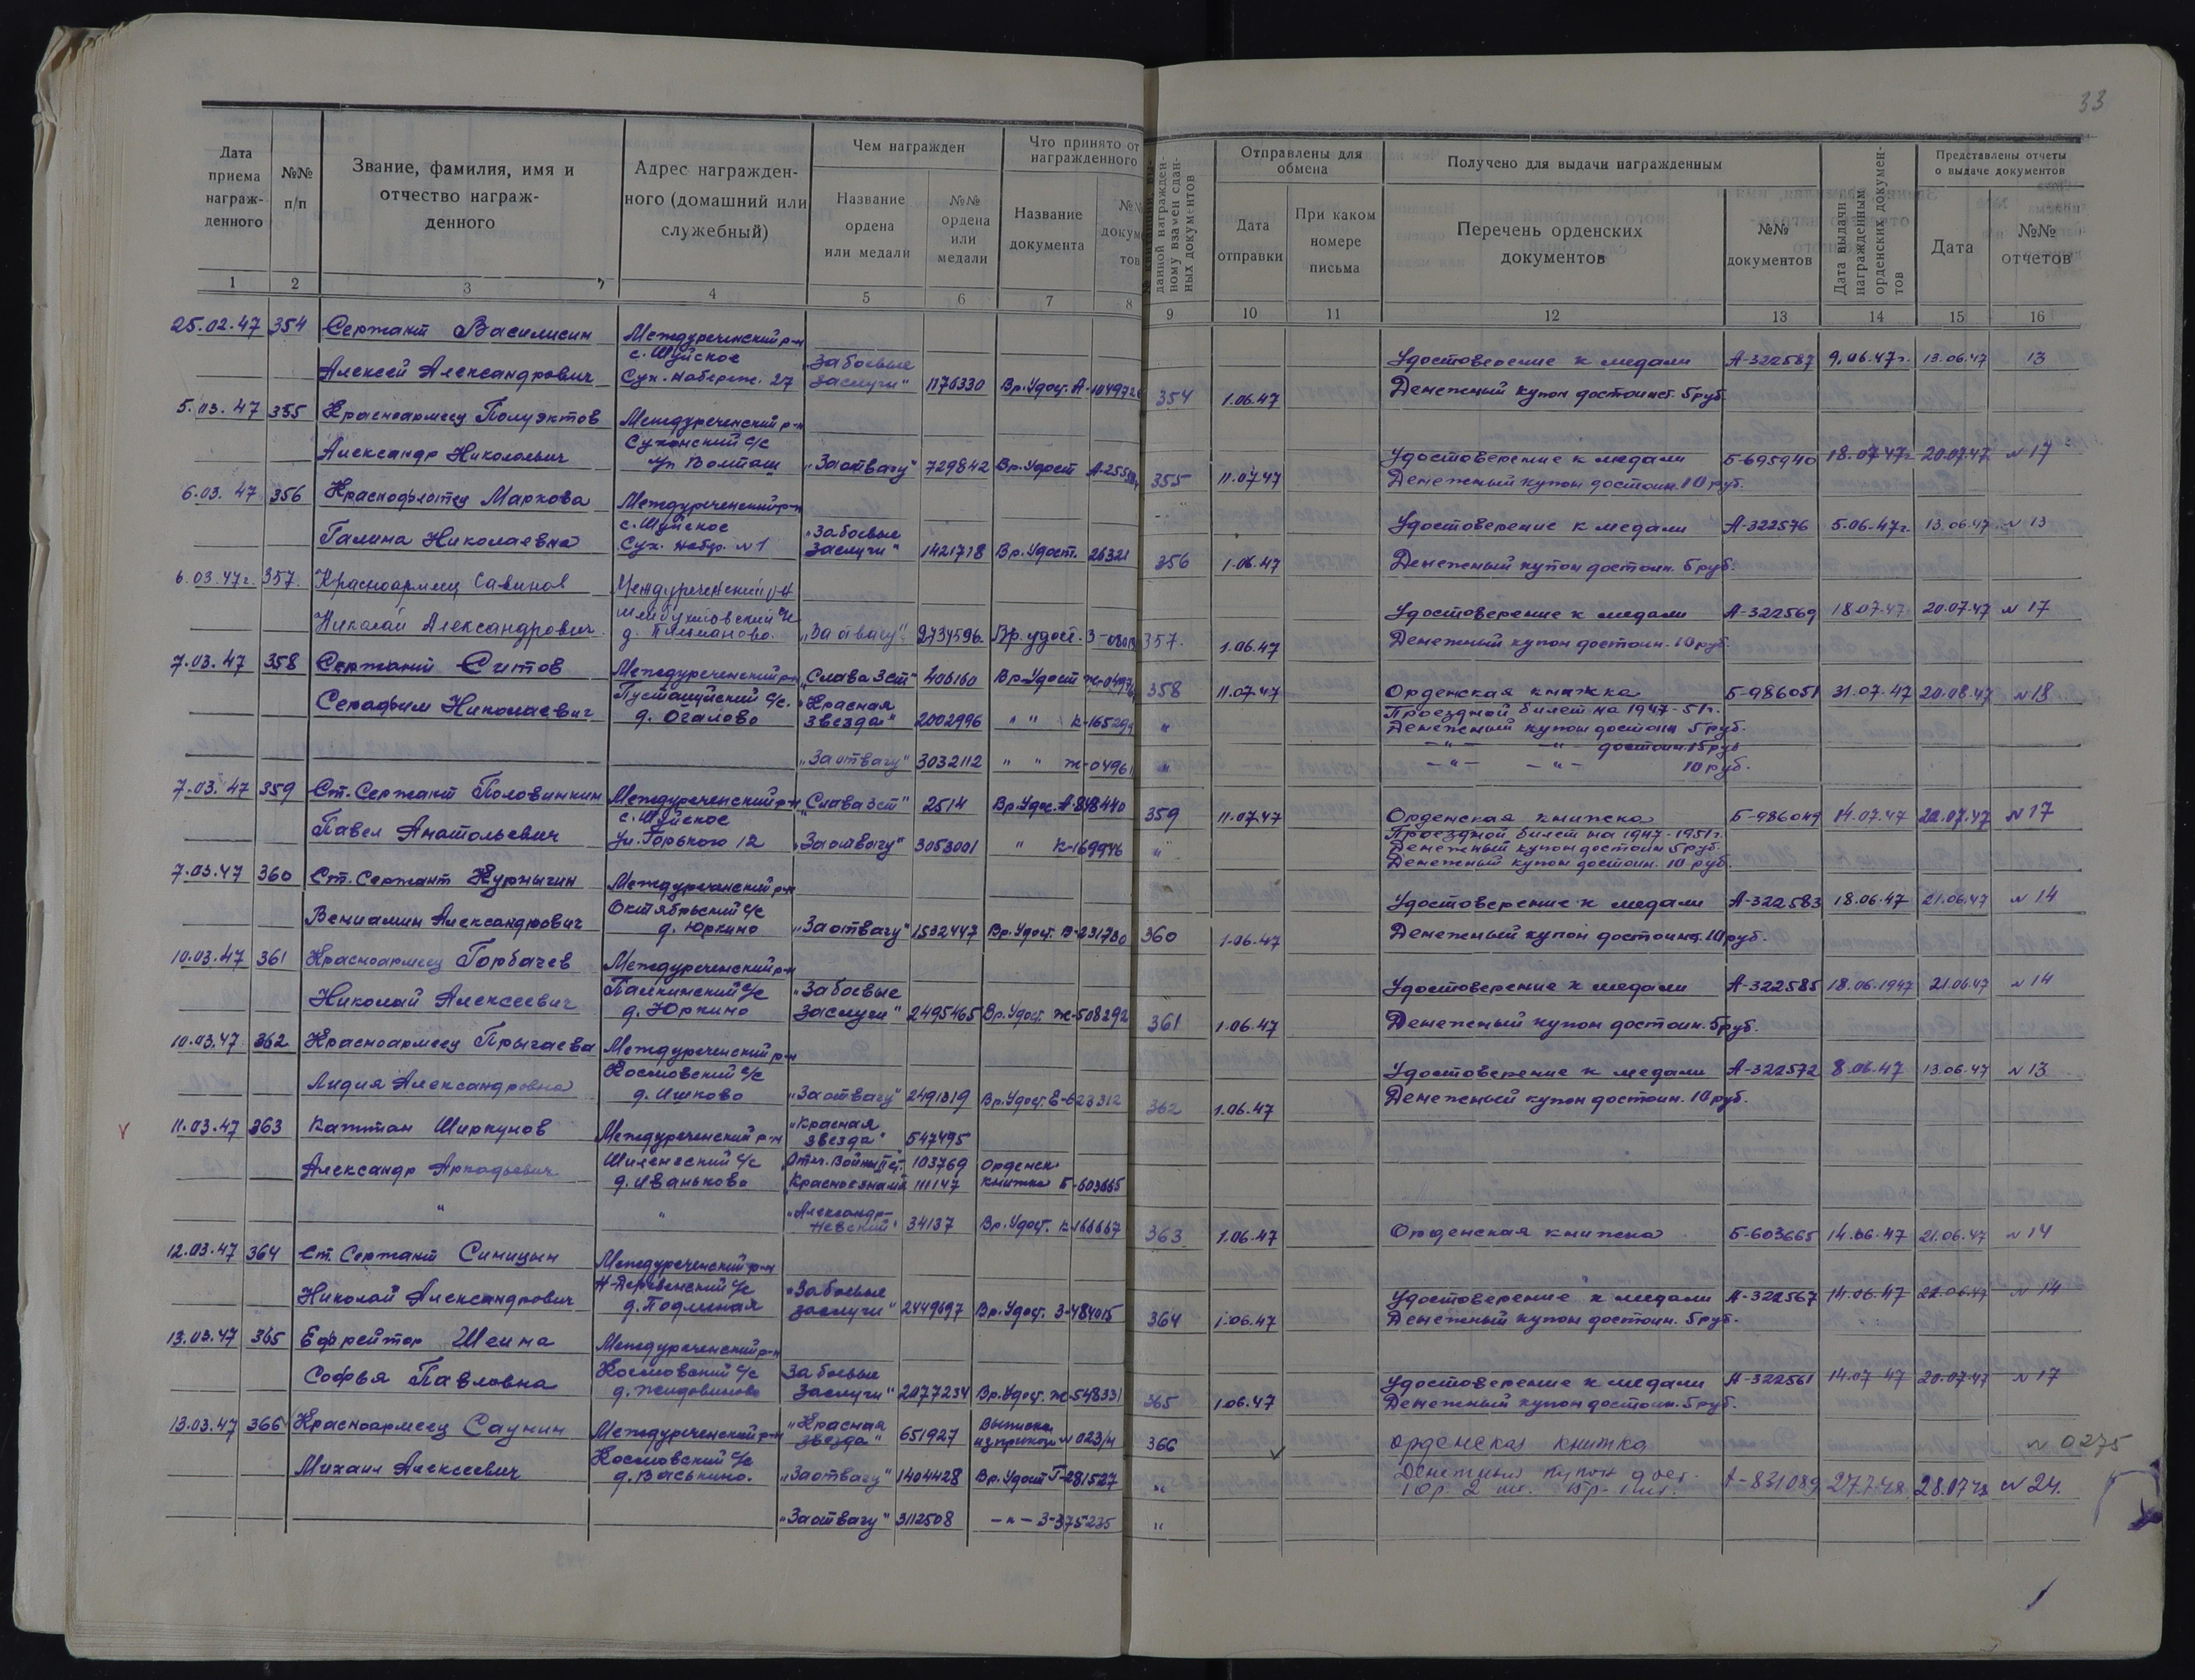 33
Дата приема награж-денного
№№ п/п
Звание, фамилия, имя и отчество награж-денного
Адрес награжден-ного (домашний или служебный)
Чем награжден
Название ордена или медали
№№ ордена или медали
Что принято от награжденного
Название документа
данной награжден-ному взамен сдан-ных документов
Отправлены для обмена
Дата отправки
При каком номере письма
Получено для выдачи награжденным
Перечень орденских документов
№№ документов
Дата выдачи награжденным орденских докумен-тов
Представлены отчеты о выдаче документов
Дата
№№ отчетов
1 2 3 4 5 6 7 8 9 10 11 12 13 14 15 16
25.02.47 354 Сержант Василисин Междуреченский р-н
с. Шуйское "За боевые Удостоверение к медали А-322587 9.06.47г. 13.06.47 13
Алексей Александрович Сух. набереж. 27 заслуги" 1176330 Вр. Удос. 354 1.06.47 Денежный купон достоинст. 5 руб.
5.03.47 355 Красноармеец Полуэктов Междуреченский р-н
Сухонский с/с Удостоверение к медали Б-695940 18.07.47г. 20.07.47 № 17
Александр Николаевич "За отвагу" 729842 Вр. Удост 355 11.07.47 Денежный купон достоин. 10 руб.
6.03.47 356 Краснофлотец Маркова Междуреченский р-н
с. Шуйское "За боевые Удостоверение к медали А-322576 5.06.47г. 13.06.47 № 13
Галина Николаевна Сух. набер. №1 заслуги" 1421718 Вр. Удост. 26321 356 1.06.47 Денежный купон достоин. 5 руб.
6.03.47г. 357. Красноармеец Савинов Междуреченский р-н
Удостоверение к медали А-322569 18.07.47 20.07.47 № 17
Николай Александрович "За отвагу" 2734596 Вр. удост. 357. 1.06.47 Денежный купон достоин. 10 руб.
7.03.47 358 Сержант Ситов Междуреченский р-н "Слава 3 ст" 406160 Вр. Удост 358 11.07.47 Орденская книжка Б-986051 31.07.47 20.08.47 № 18
Серафим Николаевич с/с. д. Огалово "Красная звезда" 2002996 " " " Проездной билет на 1947-51г.
Денежный купон достоин 5 руб.
-"- -"- достоин 15 руб
"За отвагу" 3032112 " " " -"- -"- 10 руб.
7.03.47 359 Ст. Сержант Половинкин Междуреченский р-н "Слава 3 ст" 2514 Вр. Удос. А-848440 359 11.07.47 Орденская книжка Б-986049 14.07.47 22.07.47 № 17
с. Шуйское Проездной билет на 1947-1951г.
Павел Анатольевич Ул. Горького 12 "За отвагу" 3053001 " К-169946 " Денежный купон достоин 5 руб.
Денежный купон достоин. 10 руб.
7.03.47 360 Ст. Сержант Курныгин Междуреченский р-н
Октябрьский с/с Удостоверение к медали А-322583 18.06.47 21.06.47 № 14
Вениамин Александрович д. Юркино "За отвагу" 1532447 Вр. Удост. В-231730 360 1.06.47 Денежный купон достоинст. 10 руб.
10.03.47 361 Красноармеец Горбачев Междуреченский р-н
с/с "За боевые Удостоверение к медали А-322585 18.06.1947 21.06.47 № 14
Николай Алексеевич д. Юркино заслуги" 2495465 Вр. Удост. Ж-508292 361 1.06.47 Денежный купон достоин. 5 руб.
10.03.47 362 Красноармеец Прыгаева Междуреченский р-н
с/с Удостоверение к медали А-322572 8.06.47 13.06.47 № 13
Лидия Александровна д. Ишково "За отвагу" 2491319 Вр. Удост. Е-623312 362 1.06.47 Денежный купон достоин. 10 руб.
11.03.47 363 Капитан Ширкунов Междуреченский р-н "Красная звезда" 547495
Александр Аркадьевич Шиленгский с/с Отеч. Войны II ст. 103769 Орденск.
д. Иваньково Красное знамя 111147 книжка Б-603665
" " "Александр-Невский" 34137 Вр. Удост. К-166667 363 1.06.47 Орденская книжка Б-603665 14.06.47 21.06.47 № 14
12.03.47 364 Ст. Сержант Синицын Междуреченский р-н
с/с "За боевые Удостоверение к медали А-322567 14.06.47 22.06.47 № 14
Николай Александрович д. Подлесная заслуги" 2449697 Вр. Удост. З-484015 364 1.06.47 Денежный купон достоин. 5 руб.
13.03.47 365 Ефрейтор Шеина Междуреченский р-н
с/с За боевые Удостоверение к медали А-322561 14.07.47 20.07.47 № 17
Софья Павловна заслуги" 2077234 Вр. Удост. Ж-548331 365 1.06.47 Денежный купон достоин. 5 руб.
13.03.47 366 Красноармеец Саунин Междуреченский р-н "Красная звезда" 651927 Выписка из приказа № 023/н 366 орденская книжка № 0275
Михаил Алексеевич с/с д. Васькино. "За отвагу" 1404428 Вр. Удост Г-281527 " Денежный купон дост. А-831089 27.7.48 28.07.48 № 24.
10р. 2 шт.
"За отвагу" 3112508 -"- З-375235 "